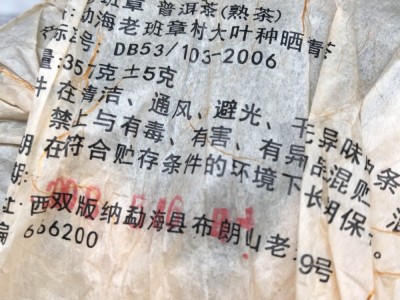 班章 普洱茶(熟茶)
勐海老班章村大叶种晒青
号: DB53/103-2006
量:357克±5克
件 在清洁、通风、避光、干 异味
禁止与有毒、有害、有异品混贮
在符合贮存条件的环境下长期保
期:
址: 西双版纳勐海县布朗山老 9号
编 666200